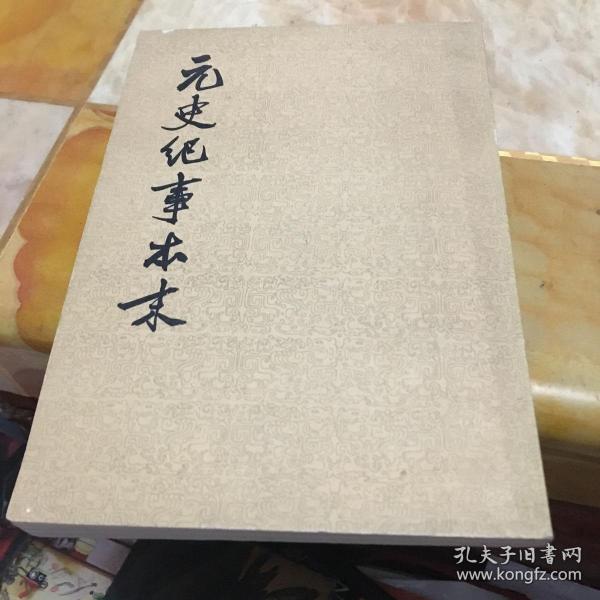 元史纪事本末
孔夫子旧書网
www.kongfz.com